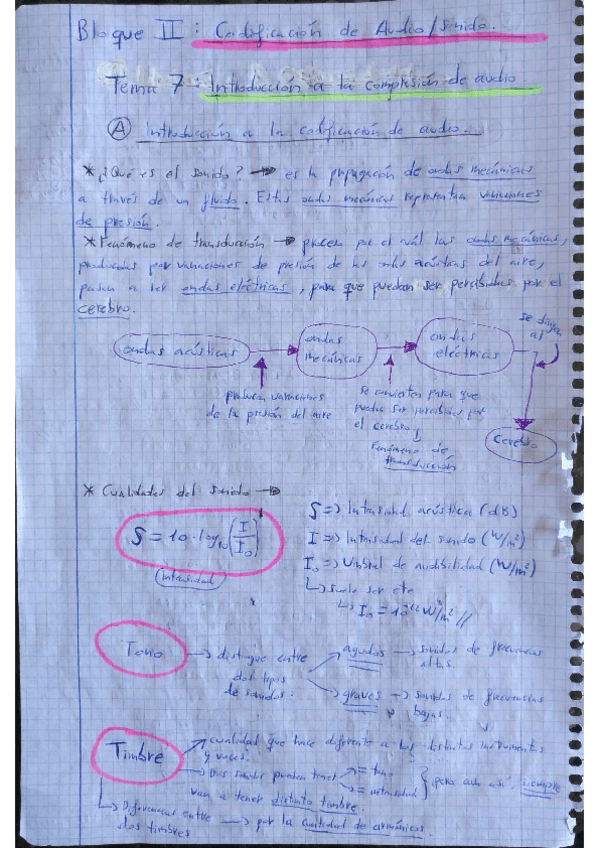 Bloque II: Codificación de Audio/sonido.
Tema 7: Introducción a la compresión de audio
A introducción a la codificación de audio.
* ¿Qué es el sonido? → es la propagación de ondas mecánicas
a través de un fluido. Estas ondas mecánicas representan variaciones
de presión.
* Fenómeno de transducción → proceso por el cuál las ondas mecánicas,
producidas por variaciones de presión de las ondas acústicas del aire,
pasan a ser ondas eléctricas, para que puedan ser percibidas por el
cerebro.
ondas acústicas → ondas mecánicas → ondas eléctricas
se dirigen al
Cerebro
producen variaciones
de la presión del aire
se convierten para que
puedan ser percibidas por
el cerebro
Fenómeno de
transducción
* Cualidades del sonido →
S = 10 · log10 (I/I0)
Intensidad
S => Intensidad acústica (dB)
I => Intensidad del sonido (W/m²)
I0 => Umbral de audibilidad (W/m²)
↳ suele ser cte
↳ I0 = 10^-12 W/m² //
Tono → distingue entre
dos tipos
de sonidos:
agudos → sonidos de frecuencias
altas.
graves → sonidos de frecuencias
bajas.
Timbre
→ cualidad que hace diferente a los distintos instrumentos
y voces.
→ Dos sonidos pueden tener = tono
= intensidad
} ¡pero aún así, siempre
van a tener distinto timbre.
↳ Diferencias entre
dos timbres → por la cantidad de armónicos.